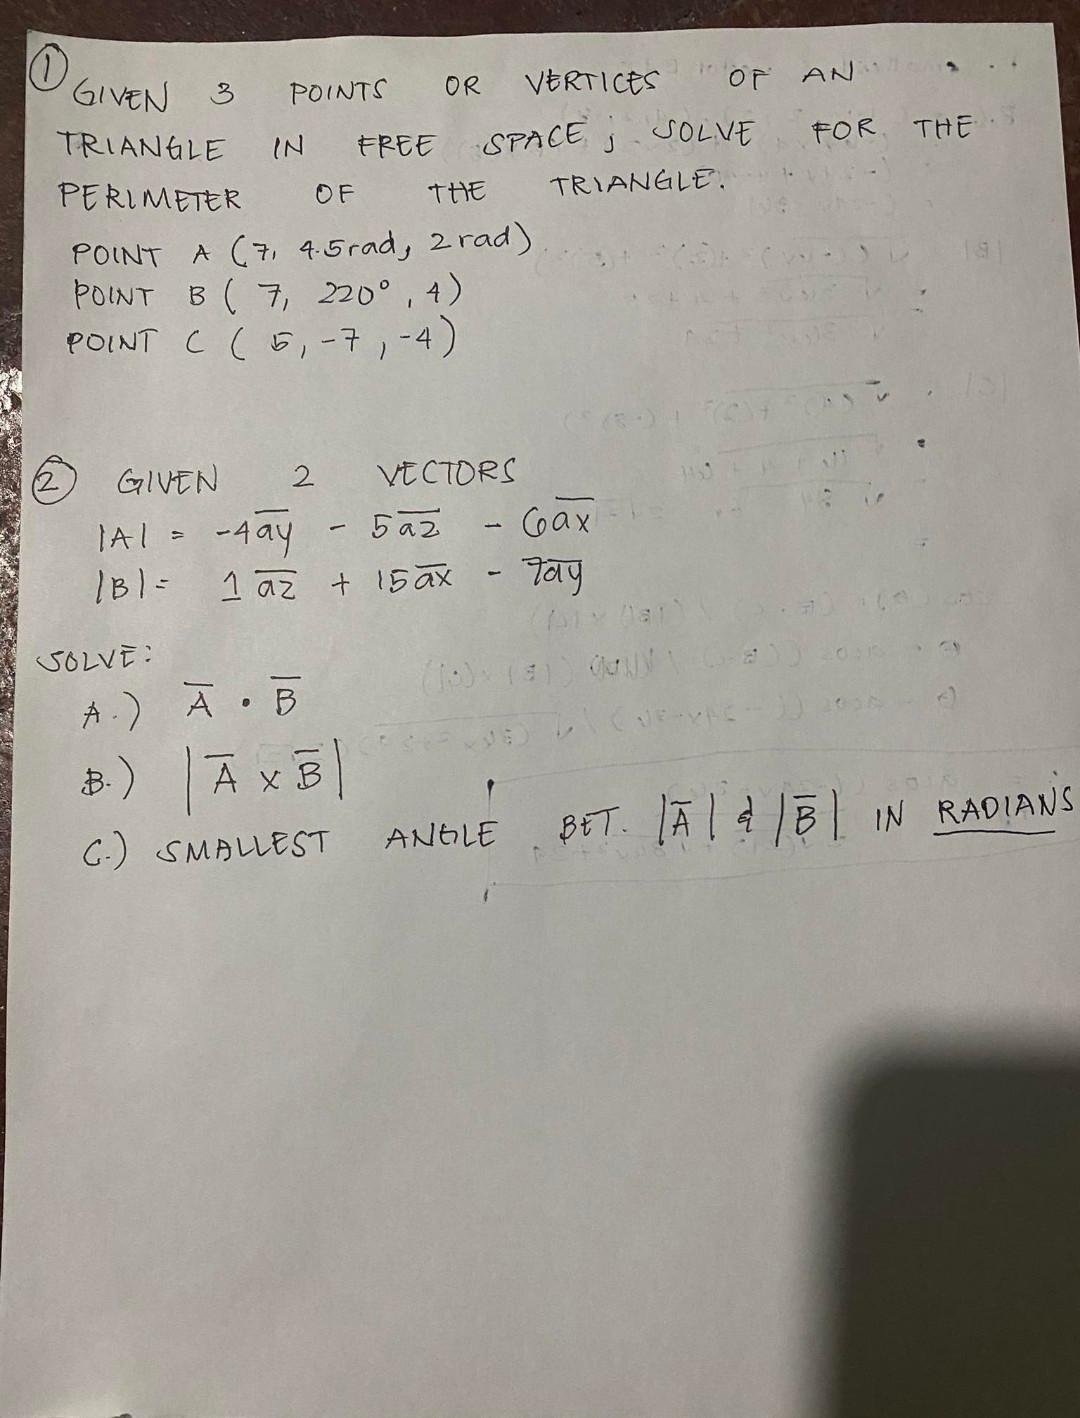 ① GIVEN 3 POINTS OR VERTICES OF AN
TRIANGLE IN FREE SPACE; SOLVE FOR THE
PERIMETER OF THE TRIANGLE.
POINT A (7, 4.5rad, 2rad)
POINT B (7, 220°, 4)
POINT C (5, -7, -4)
② GIVEN 2 VECTORS
|A| = -4a̅y̅ - 5a̅z̅ - 6a̅x̅
|B| = 1a̅z̅ + 15a̅x̅ - 7a̅y̅
SOLVE:
A.) A̅ • B̅
B.) |A̅ x B̅|
C.) SMALLEST ANGLE BET. |A̅| & |B̅| IN RADIANS